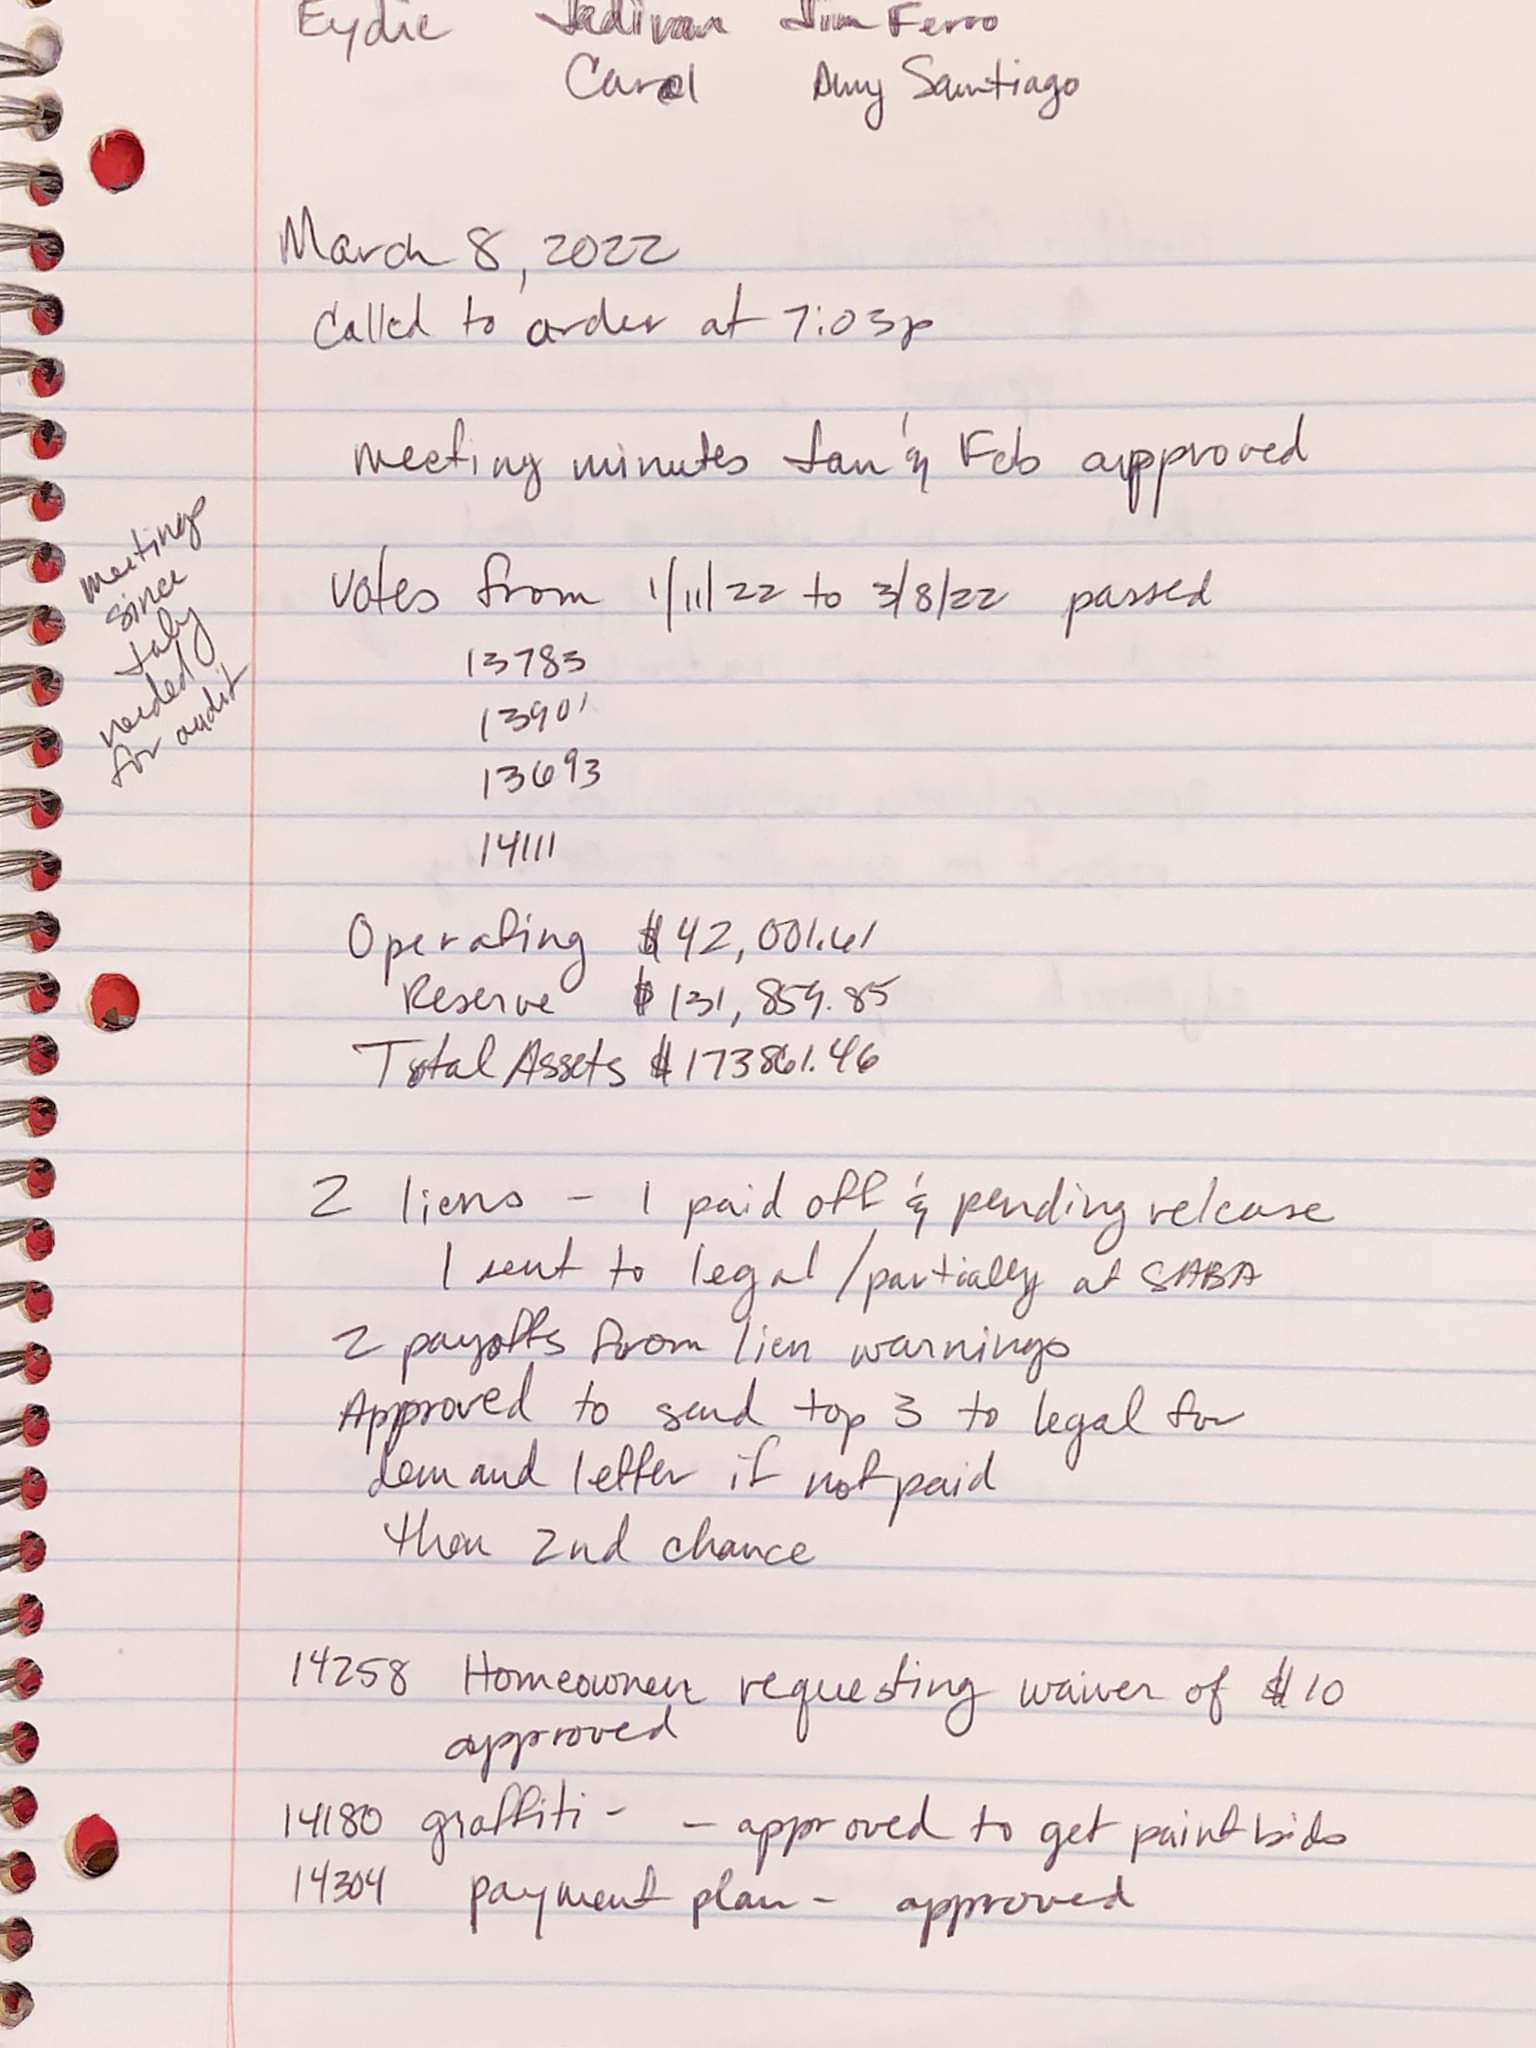 Eydie Jim Ferro
Carol Amy Santiago
March 8, 2022
Called to order at 7:03p
meeting minutes Jan & Feb approved
meetings
since
July
needed
for audit
Votes from 1/11/22 to 3/8/22 passed
13783
13901
13693
14111
Operating $42,001.61
Reserve $131,859.85
Total Assets $173861.46
2 liens - 1 paid off & pending release
1 sent to legal/partially at SABA
2 payoffs from lien warnings
Approved to send top 3 to legal for
demand letter if not paid
then 2nd chance
14258 Homeowner requesting waiver of $10
approved
14180 graffiti - - approved to get paint bids
14304 payment plan - approved